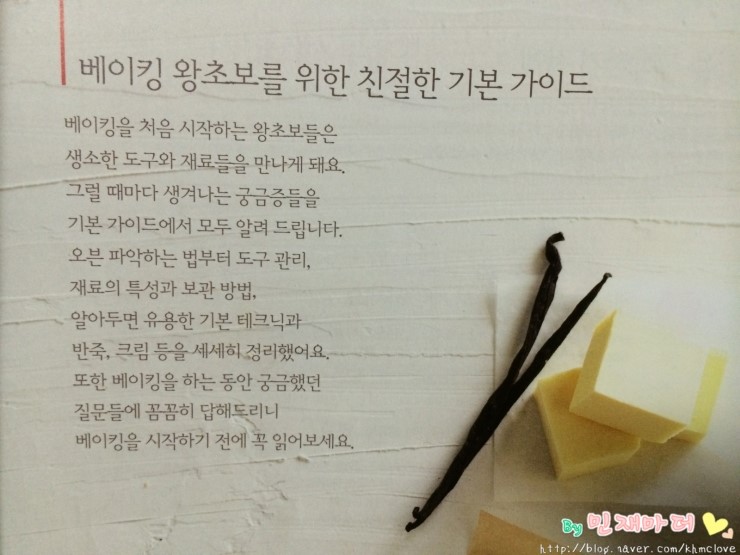 베이킹 왕초보를 위한 친절한 기본 가이드
베이킹을 처음 시작하는 왕초보들은
생소한 도구와 재료들을 만나게 돼요.
그럴 때마다 생겨나는 궁금증들을
기본 가이드에서 모두 알려 드립니다.
오븐 파악하는 법부터 도구 관리,
재료의 특성과 보관 방법,
알아두면 유용한 기본 테크닉과
반죽, 크림 등을 세세히 정리했어요.
또한 베이킹을 하는 동안 궁금했던
질문들에 꼼꼼히 답해드리니
베이킹을 시작하기 전에 꼭 읽어보세요.
By 민재마더
http://blog.naver.com/khmclove